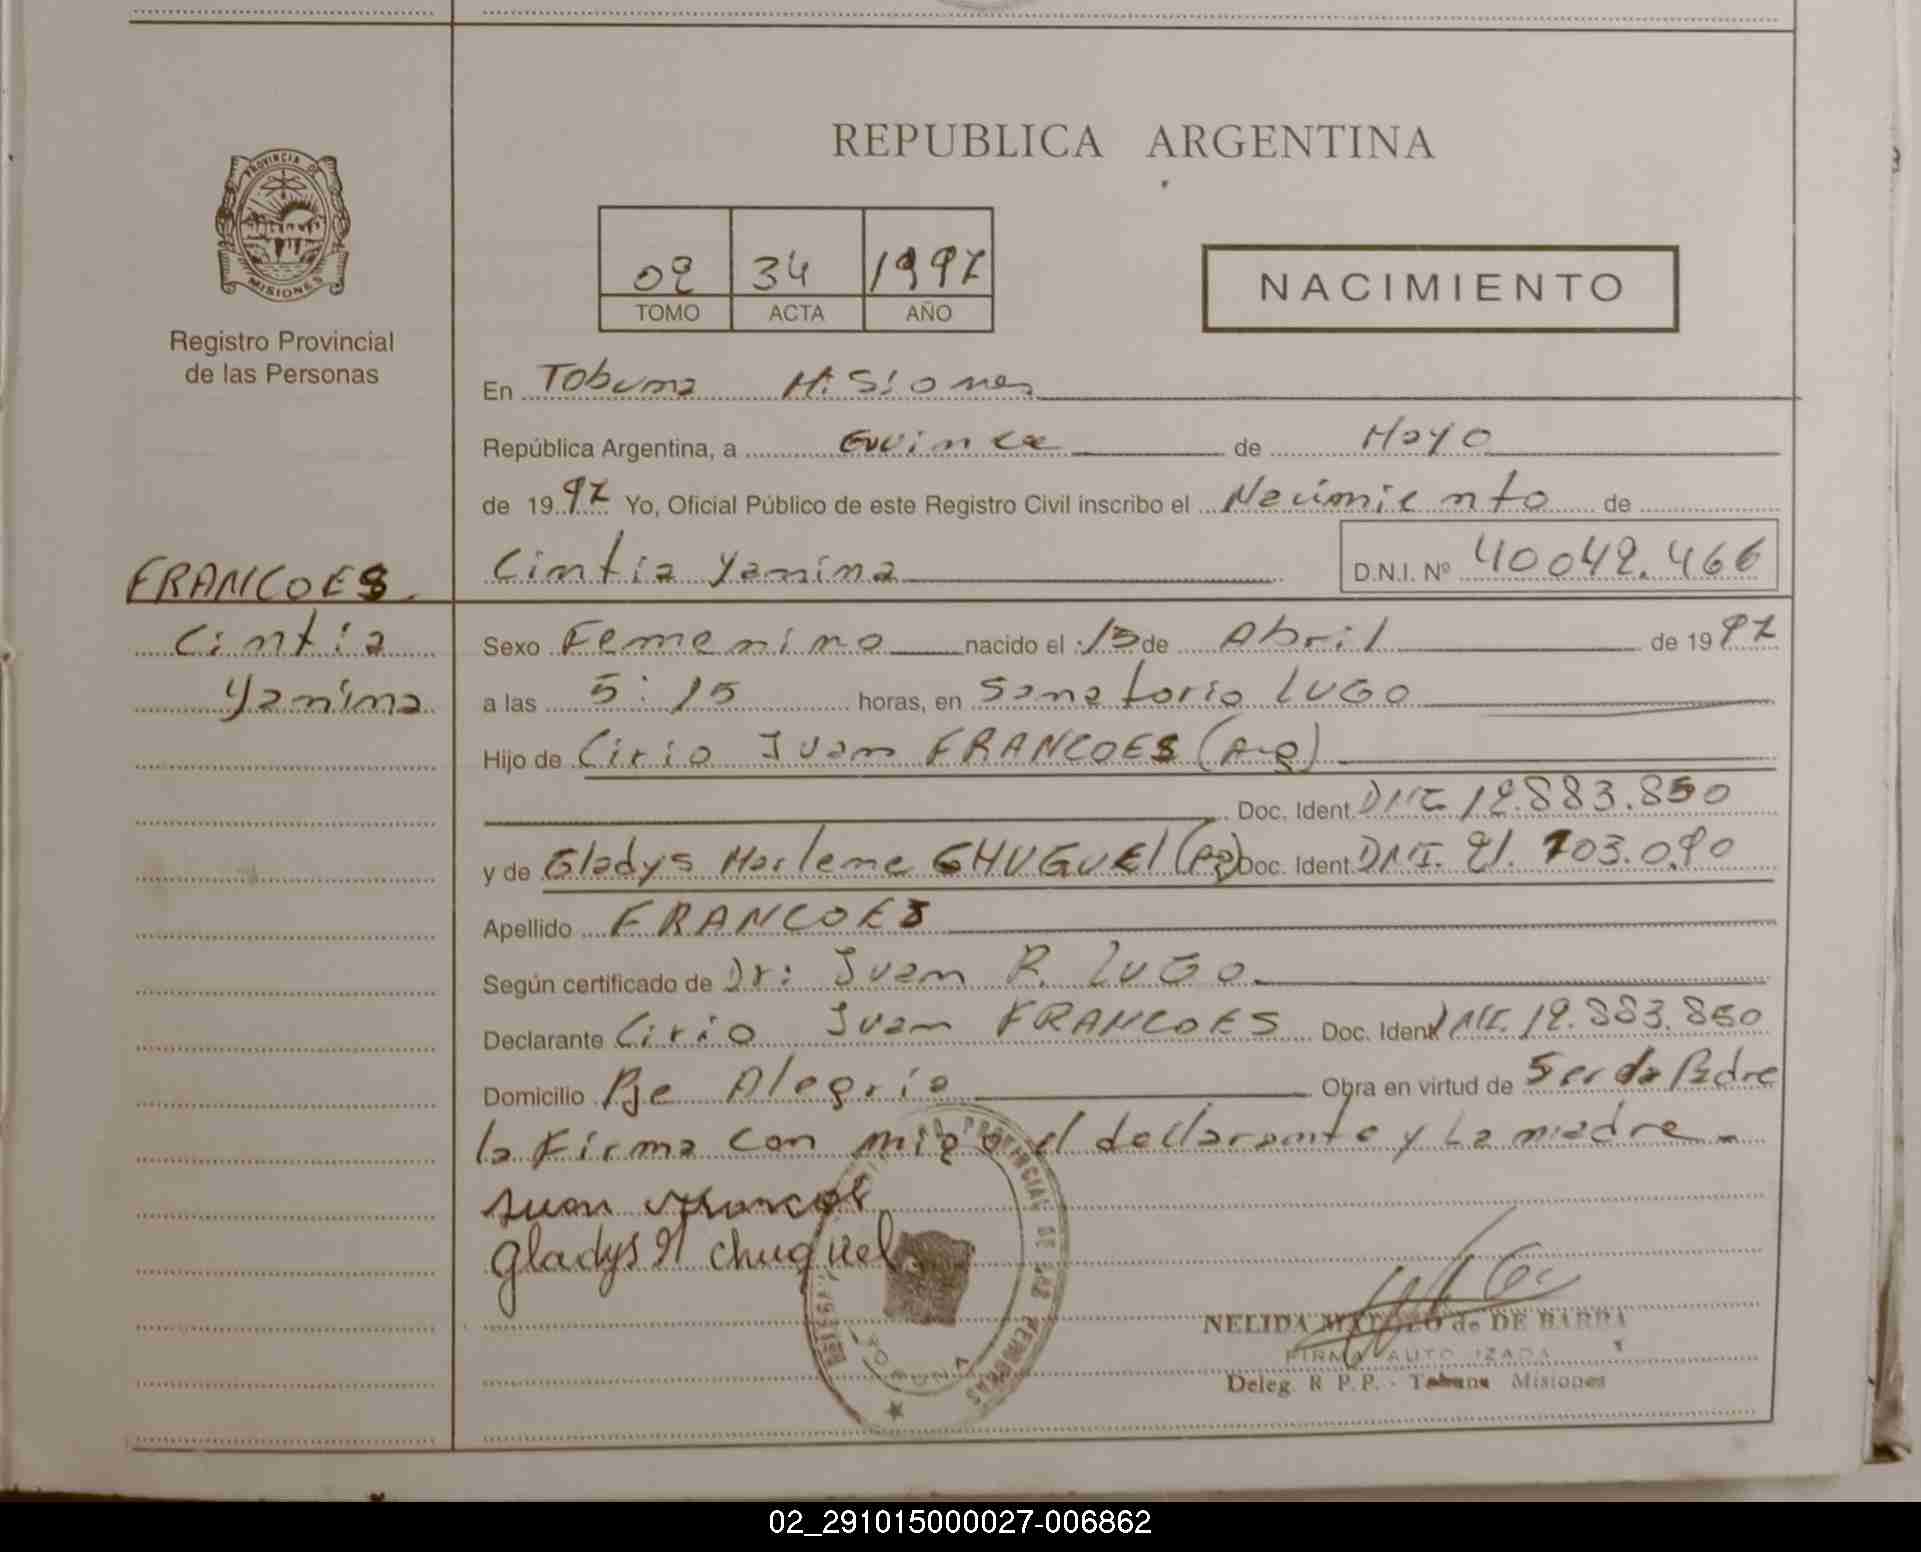 REPUBLICA ARGENTINA
PROVINCIA DE
MISIONES
Registro Provincial
de las Personas
02 34 1997
TOMO ACTA AÑO
NACIMIENTO
En Tobuna Misiones
República Argentina, a Quince de Mayo
de 1997 Yo, Oficial Público de este Registro Civil inscribo el Nacimiento de
FRANCOES
Cintia Yamina
D.N.I. Nº 40042.466
Cintia
Yamina
Sexo Femenino nacido el 15 de Abril de 1997
a las 5:15 horas, en Sanatorio LUGO
Hijo de Cirio Juan FRANCOES (Arg)
Doc. Ident. DNI 12.883.850
y de Gladys Marlene CHUGUEL (Arg) Doc. Ident. DNI. 21.703.090
Apellido FRANCOES
Según certificado de Dr: Juan R. LUGO
Declarante Cirio Juan FRANCOES Doc. Ident. DNI. 12.883.850
Domicilio Pje Alegria Obra en virtud de Ser da Padre
la Firma con migo el declarante y La madre
Juan Francoes
Gladys M Chuguel
PROVINCIAL DE LAS PERSONAS
TOBUNA
NELIDA de DE BARRA
FIRMA AUTORIZADA
Deleg. R.P.P. - Tobuna Misiones
02_291015000027-006862